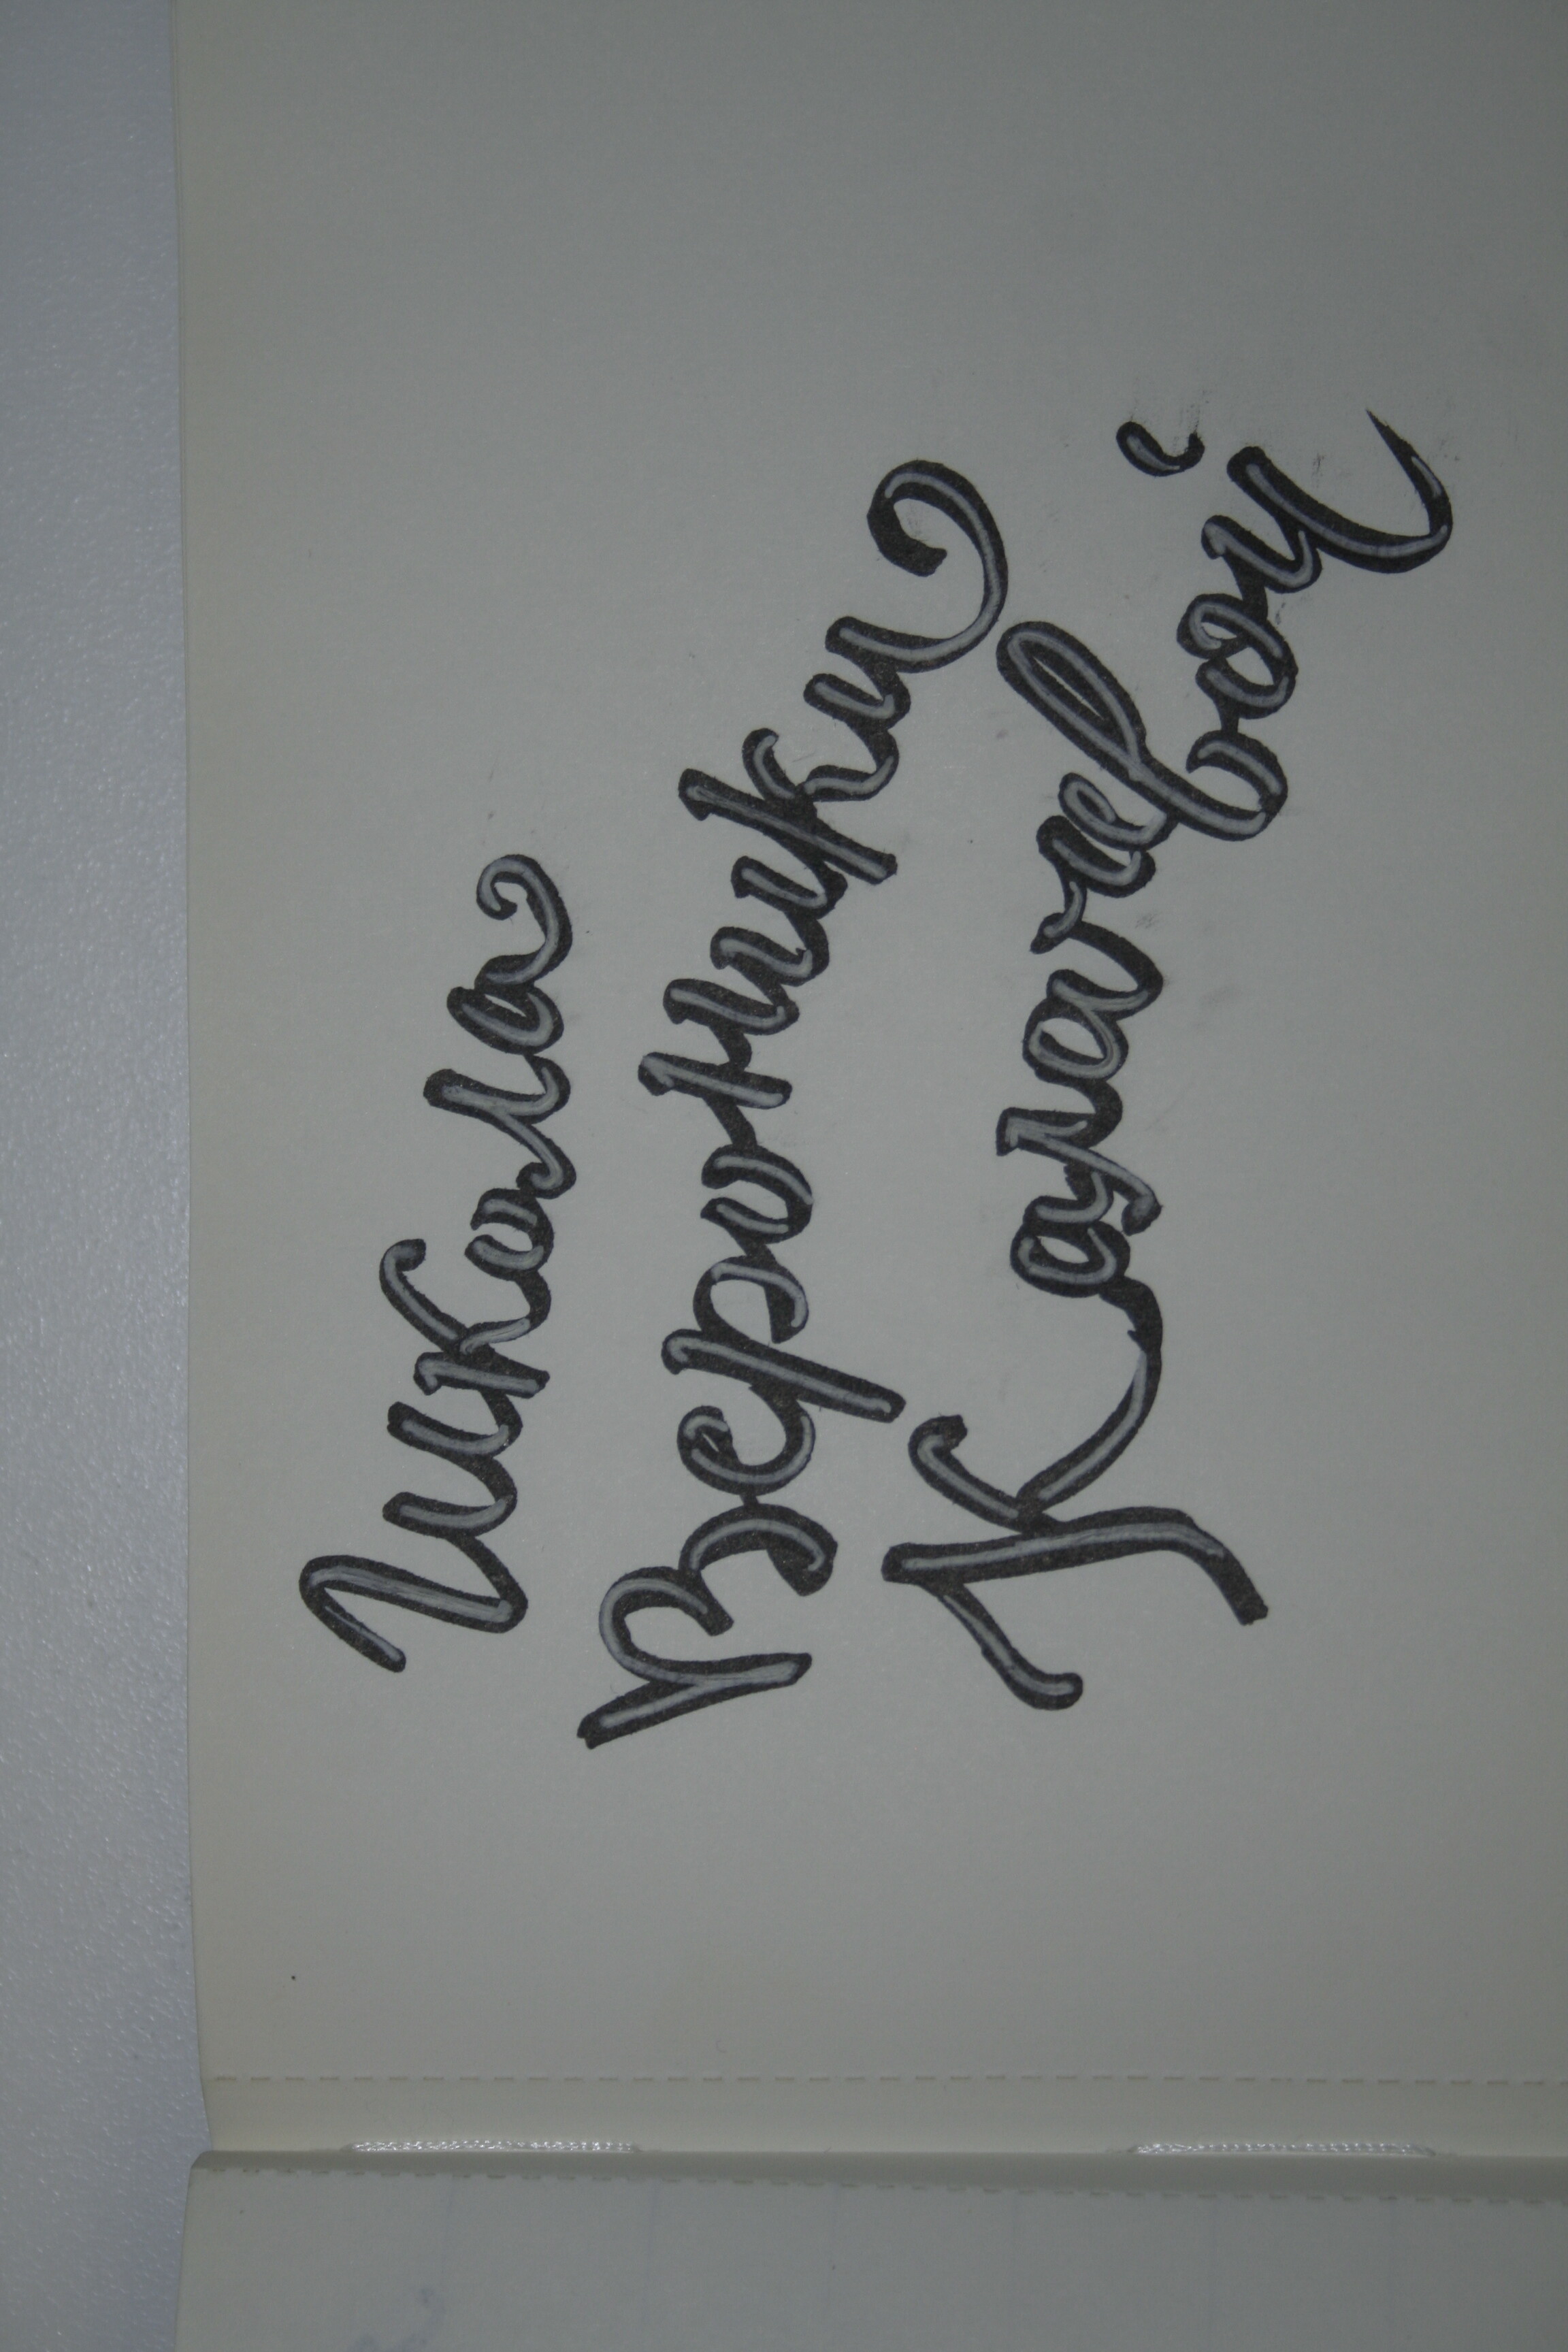 Школа
Вероники
Калачевой